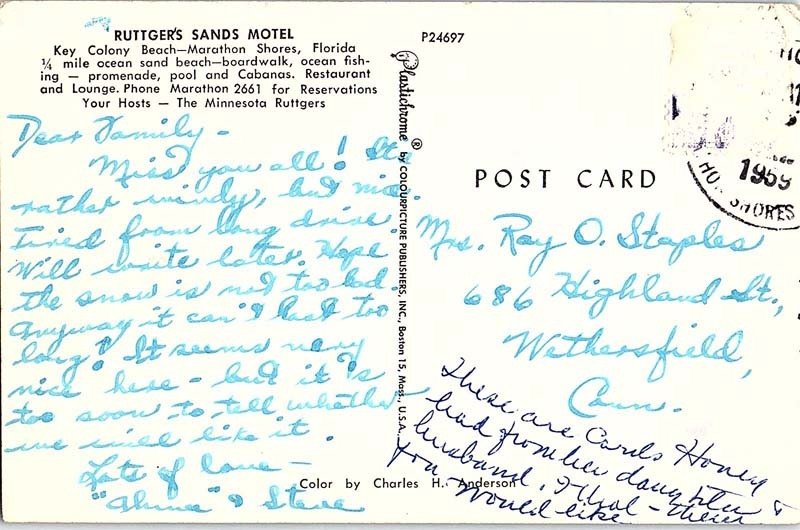 RUTTGER'S SANDS MOTEL
Key Colony Beach—Marathon Shores, Florida
¼ mile ocean sand beach—boardwalk, ocean fish-
ing — promenade, pool and Cabanas. Restaurant
and Lounge. Phone Marathon 2661 for Reservations
Your Hosts — The Minnesota Ruttgers
Dear Family -
Miss you all! It's
rather windy, but nice.
Tired from long drive.
Will write later. Hope
the snow is not too bad.
Anyway it can't last too
long! It seems very
nice here - but it is
too soon to tell whether
we will like it.
Lots of love -
& Steve
P24697
Plastichrome ® by COLOURPICTURE PUBLISHERS, INC., Boston 15, Mass., U.S.A.
POST CARD
1959
SHORES
Mrs. Ray O. Staples
686 Highland St.,
Wethersfield,
Conn.
These are Cards Honey
had from her daughter &
husband. I thot - their
You would like
Color by Charles H. Anderson